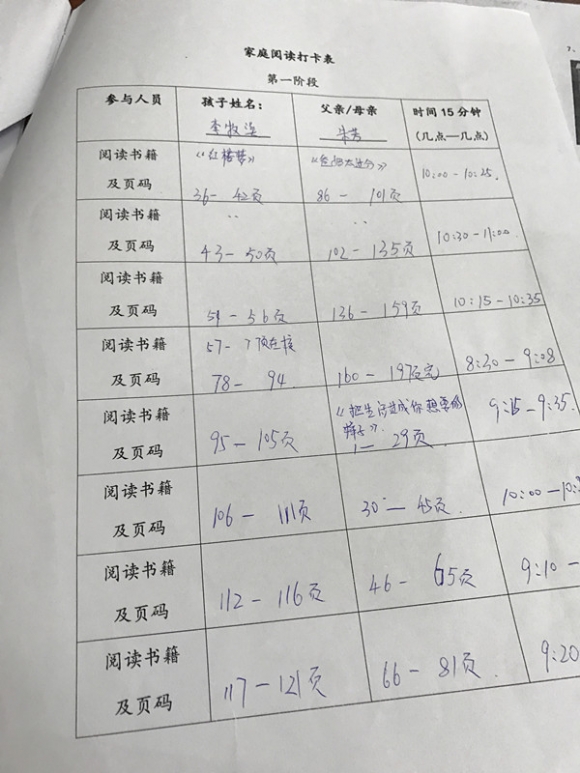 家庭阅读打卡表
第一阶段
参与人员 孩子姓名： 父亲/母亲 时间15分钟
李牧 （几点—几点）
阅读书籍 《红楼梦》
及页码 36- 42页 86 - 101页 10:00-10:25.
阅读书籍
及页码 43-50页 102-135页 10:30-11:00
阅读书籍
及页码 -56页 136-159页 10:15-10:35
阅读书籍 57-
及页码 78- 94. 160-197页完 8:30-9:08
阅读书籍 《把生活过成你想要的
样子》. 9:15-9:35.
及页码 95-105页 1-29页.
阅读书籍
及页码 106-111页 30-45页. 10:00-10:
阅读书籍
及页码 112-116页 46-65页 9:10-
阅读书籍
及页码 117-121页 66-81页. 9:20